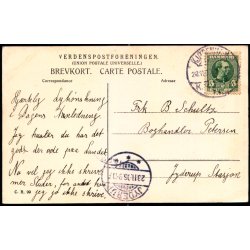 VERDENSPOSTFORENINGEN.
(UNION POSTALE UNIVERSELLE.)
BREVKORT. CARTE POSTALE.
Correspondance
Adresse
Hjertelig Lykønskning
i Dagens Anledning.
Jeg haaber du har det
godt der ovre paa
Nu vil jeg ikke skrive
mer
jo ikke skrive
Frk B Schultz
Boghandler Petersen
Jyderup Station
DANMARK
5
JYDERUP